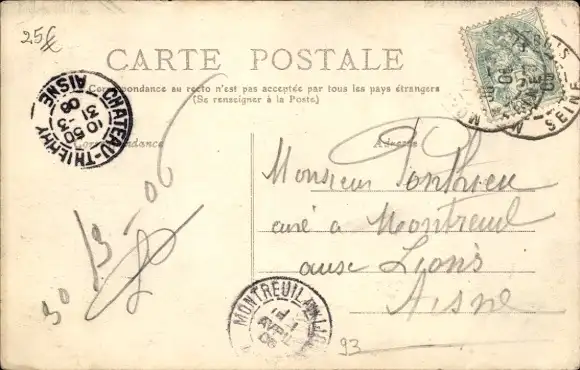 25€
CARTE POSTALE
Correspondance au recto n'est pas acceptée par tous les pays étrangers
(Se renseigner à la Poste)
Correspondance
Adresse
CHATEAU-THIERRY
10 50
31 -3
06
AISNE
SEINE
30 - 3 - 06
Monsieur Ponthieu
curé à Montreuil
aux Lions
Aisne
MONTREUIL-AUX-LIONS
1
AVRIL
06
93